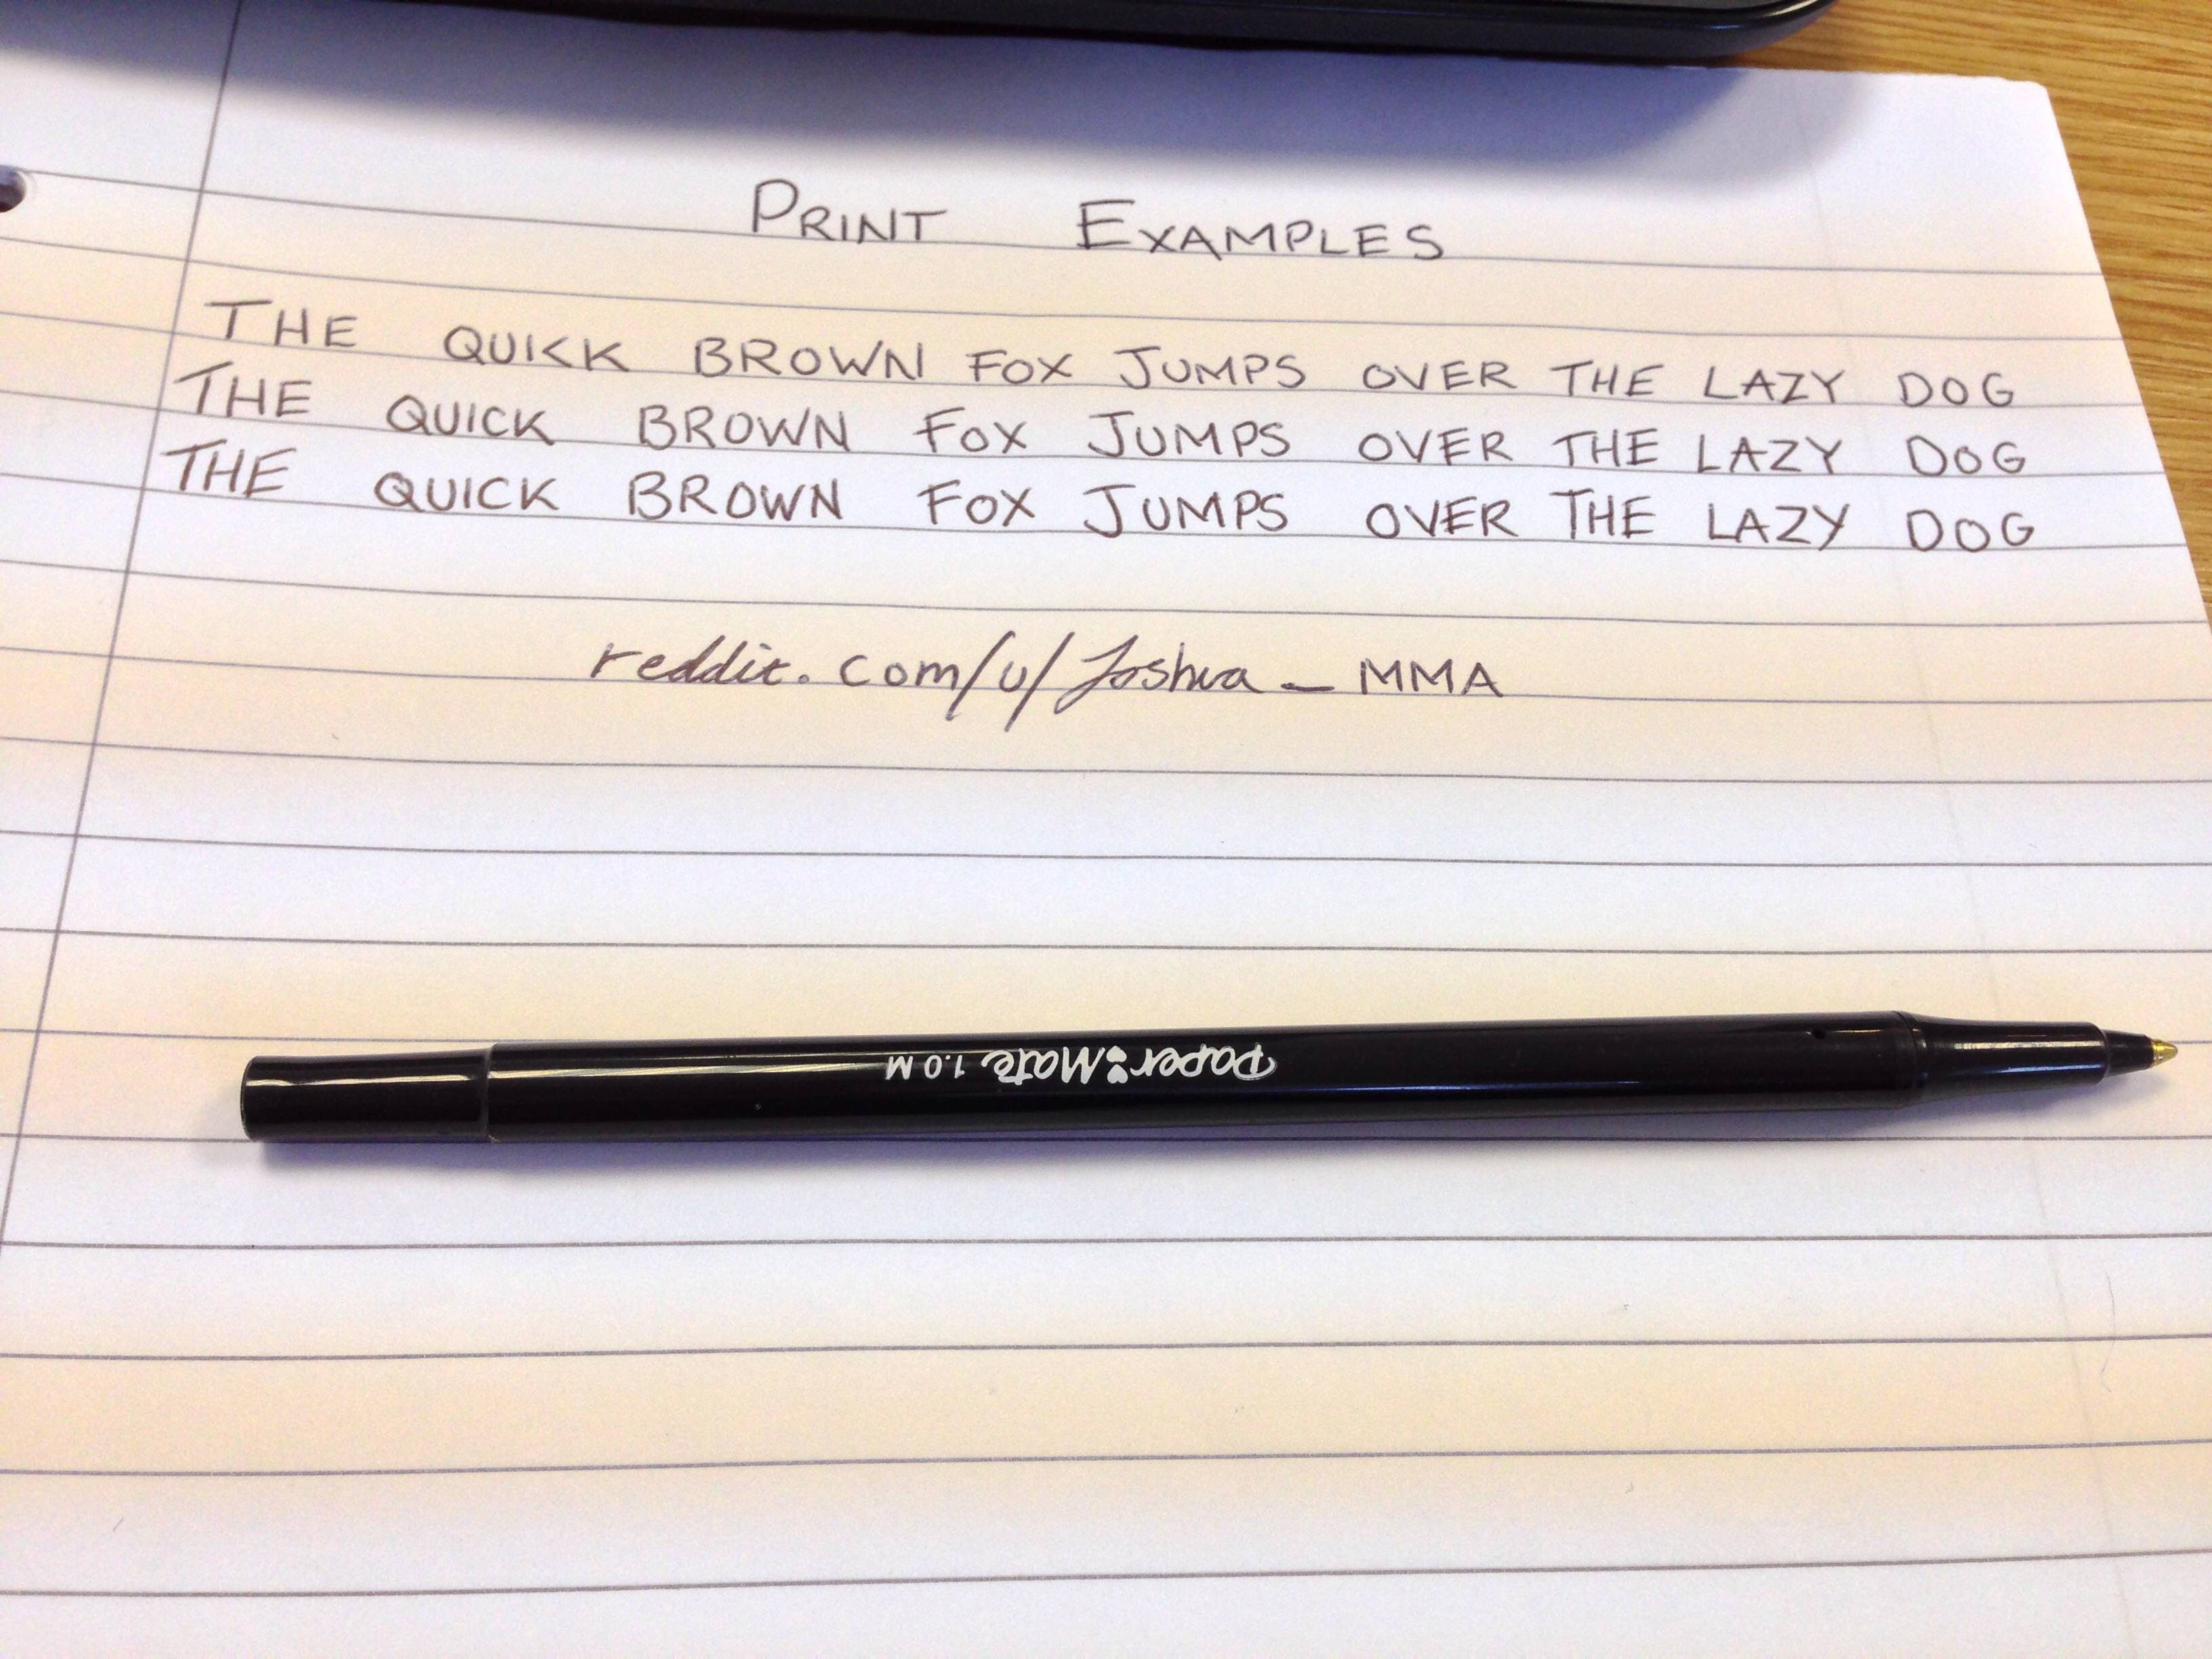 PRINT EXAMPLES
THE QUICK BROWN FOX JUMPS OVER THE LAZY DOG
THE QUICK BROWN FOX JUMPS OVER THE LAZY DOG
THE QUICK BROWN FOX JUMPS OVER THE LAZY DOG
reddit.com/u/Joshua_MMA
Paper Mate 1.0 M